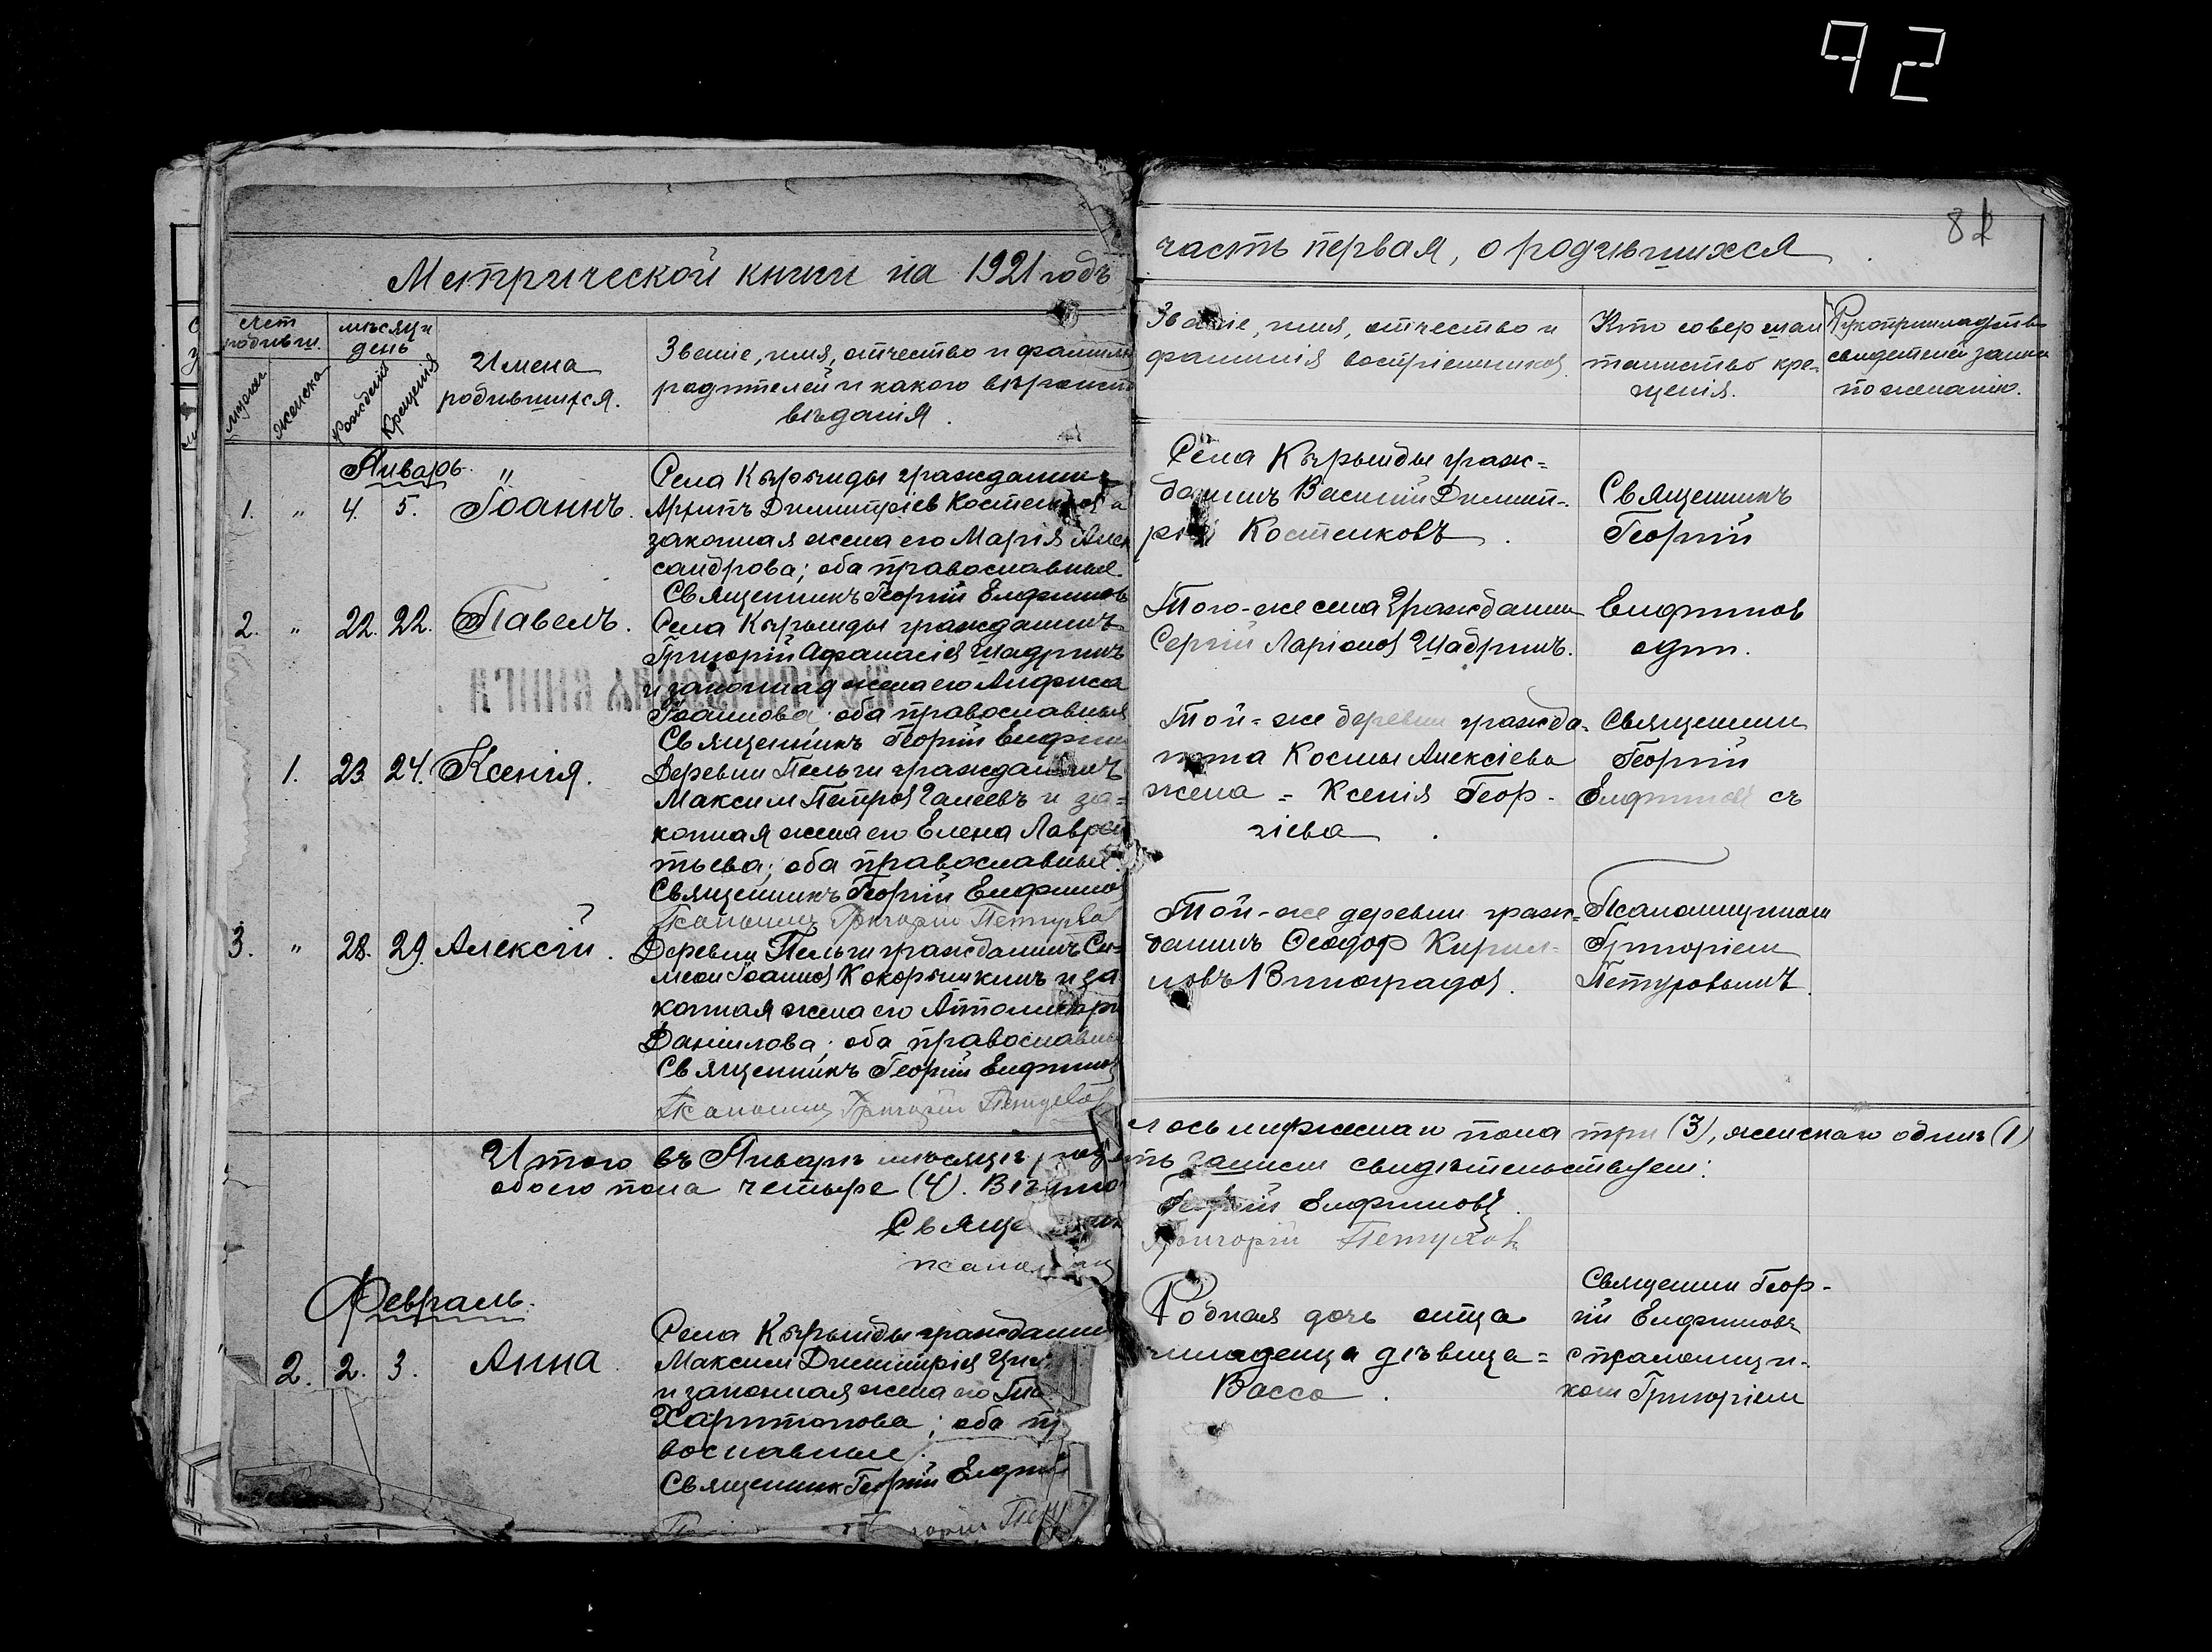 92
82
Метрической книги на 1921 годъ
часть первая, о родившихся
счет родивш.
мѣсяц и день
Имена родившихся.
Званіе, имя, отчество и фамилія
родителей и какого вѣроиспо
вѣданія.
мужск.
женска
Рожденія
Крещенія
Званіе, имя, отчество и
фамилія воспріемников
Кто совершал
таинство кре-
щенія.
Рукоприкладство
свидетелей записи
по желанію.
Январь. "
1. " 4. 5. Іоаннъ.
Села Кырынды гражданинъ
Архипъ Димитріев Костенков и
законная жена его Марія Алек
сандрова; оба православные.
Священникъ Георгій Елфимов
Села Кырынды граж=
данинъ Василій Димит-
рій Костенковъ.
Священникъ
Георгій
2. " 22. 22. Павелъ.
Села Кырынды гражданинъ
Григорій Афанасіев Шадринъ
и законная жена его Анфиса
Іоаннова; оба православныя
Священникъ Георгій Елфим
Того-же села Гражданин
Сергій Ларіонов Шадринъ.
Елфимов
один.
МЕТРИЧЕСКАЯ КНИГА
1. 23. 24. Ксенія.
Деревни Пельги гражданинъ
Максим Петров Галеевъ и за=
конная жена его Елена Лаврен
тьева; оба православные.
Священникъ Георгій Елфимов
Псаломщ Григорій Петухов
Той-же деревни гражда-
нина Космы Алексіева
жена = Ксенія Геор-
гіева.
Священник
Георгій
Елфимов съ
3. " 28. 29. Алексій.
Деревни Пельги гражданинъ Си-
меон Іоаннов Кокорышкинъ и за
конная жена его
Даніилова; оба православны
Священникъ Георгій Елфимов
Псаломщ Григорій Петухов
Той-же деревни граж-
данинъ Феодор Кирил-
ловъ Виноградов.
Псаломщиком
Григоріем
Петуховымъ.
Итого въ Январѣ мѣсяцѣ роди
лось мужскаго пола три (3), женскаго одна (1)
обоего пола четыре (4). Вѣрно
сть записи свидѣтельствуем:
Священник
Георгій Елфимовъ.
псаломщ
Григорій Петухов
Февраль.
2. 2. 3. Анна.
Села Кырынды гражданин
Максим Димитріев
и законная жена его
Харитонова; оба пра
вославные.
Священник Георгій Елфим
Родная дочь отца
младенца дѣвица=
Васса.
Священник Геор-
гій Елфимовъ
с псаломщи-
ком Григоріем